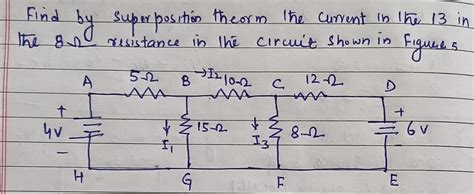 Find by superposition theorm the current in the 13 in
the 8-Ω resistance in the circuit shown in Figure 5
A 5-Ω B →I2 10-Ω C 12-Ω D
+ +
4V ↓ 15-Ω ↓ 8-Ω 6V
- I1 I3 -
H G F E